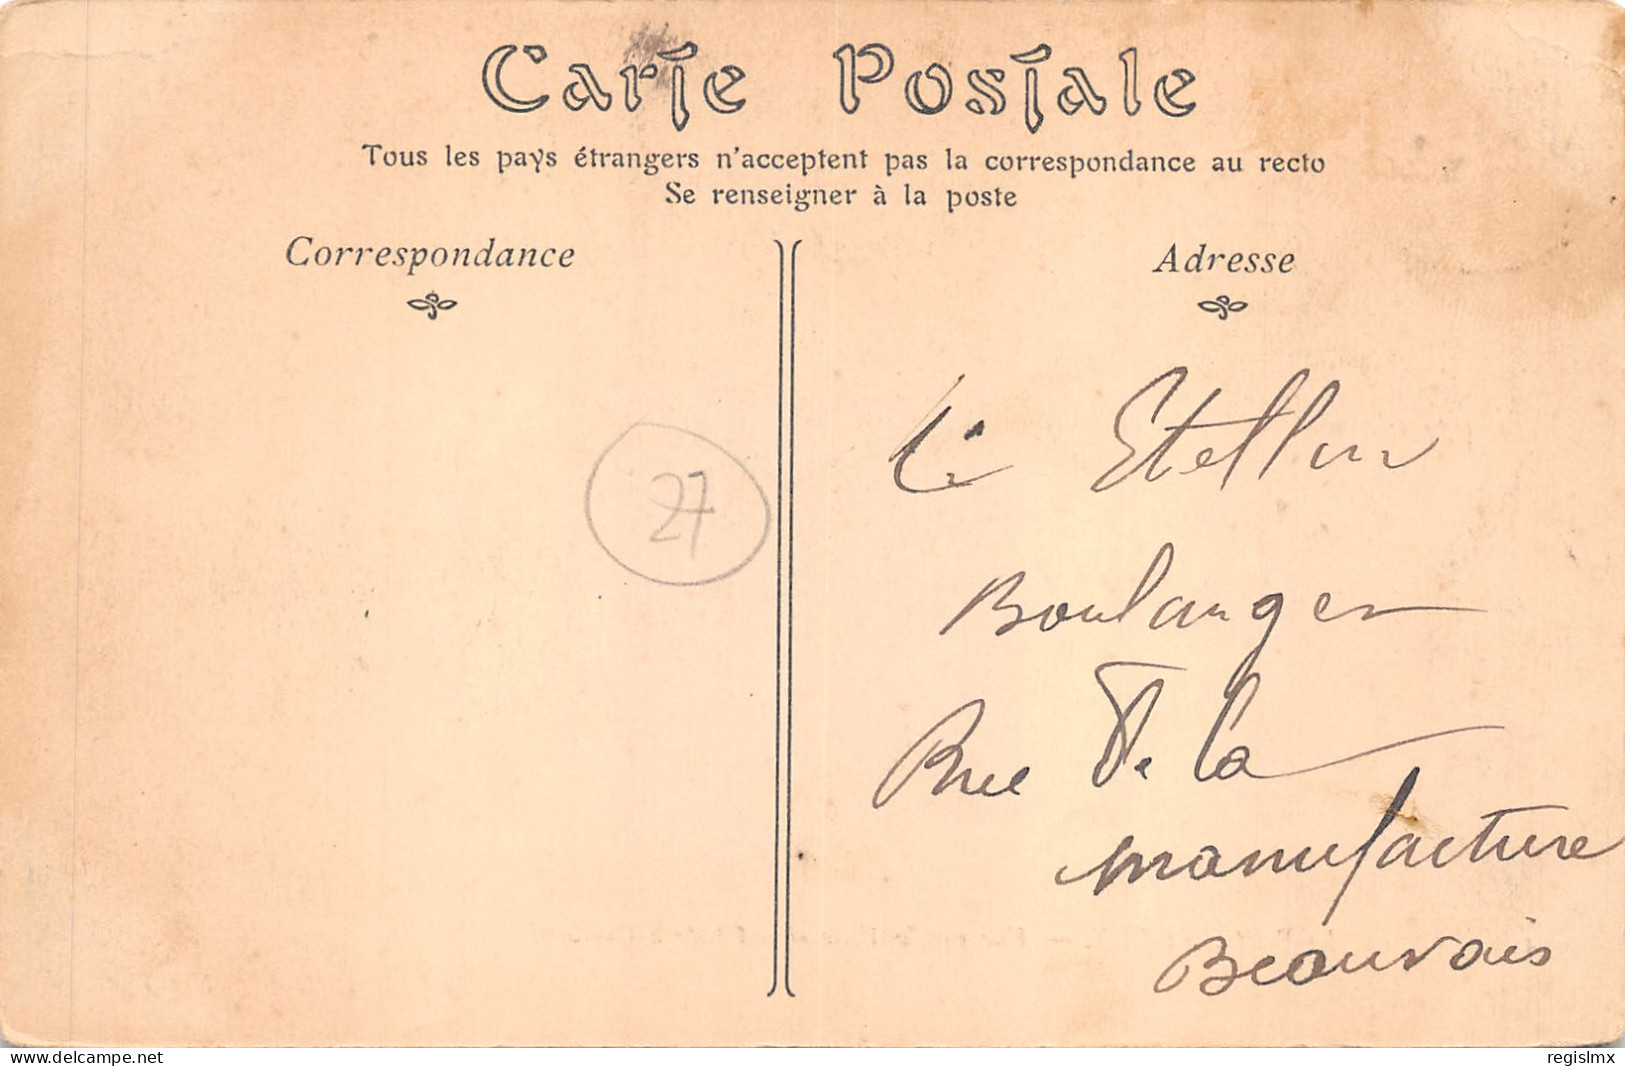 Carte Postale
Tous les pays étrangers n'acceptent pas la correspondance au recto
Se renseigner à la poste
Correspondance
Adresse
27
Boulanger
Rue De la
manufacture
Beauvais
www.delcampe.net
regislmx